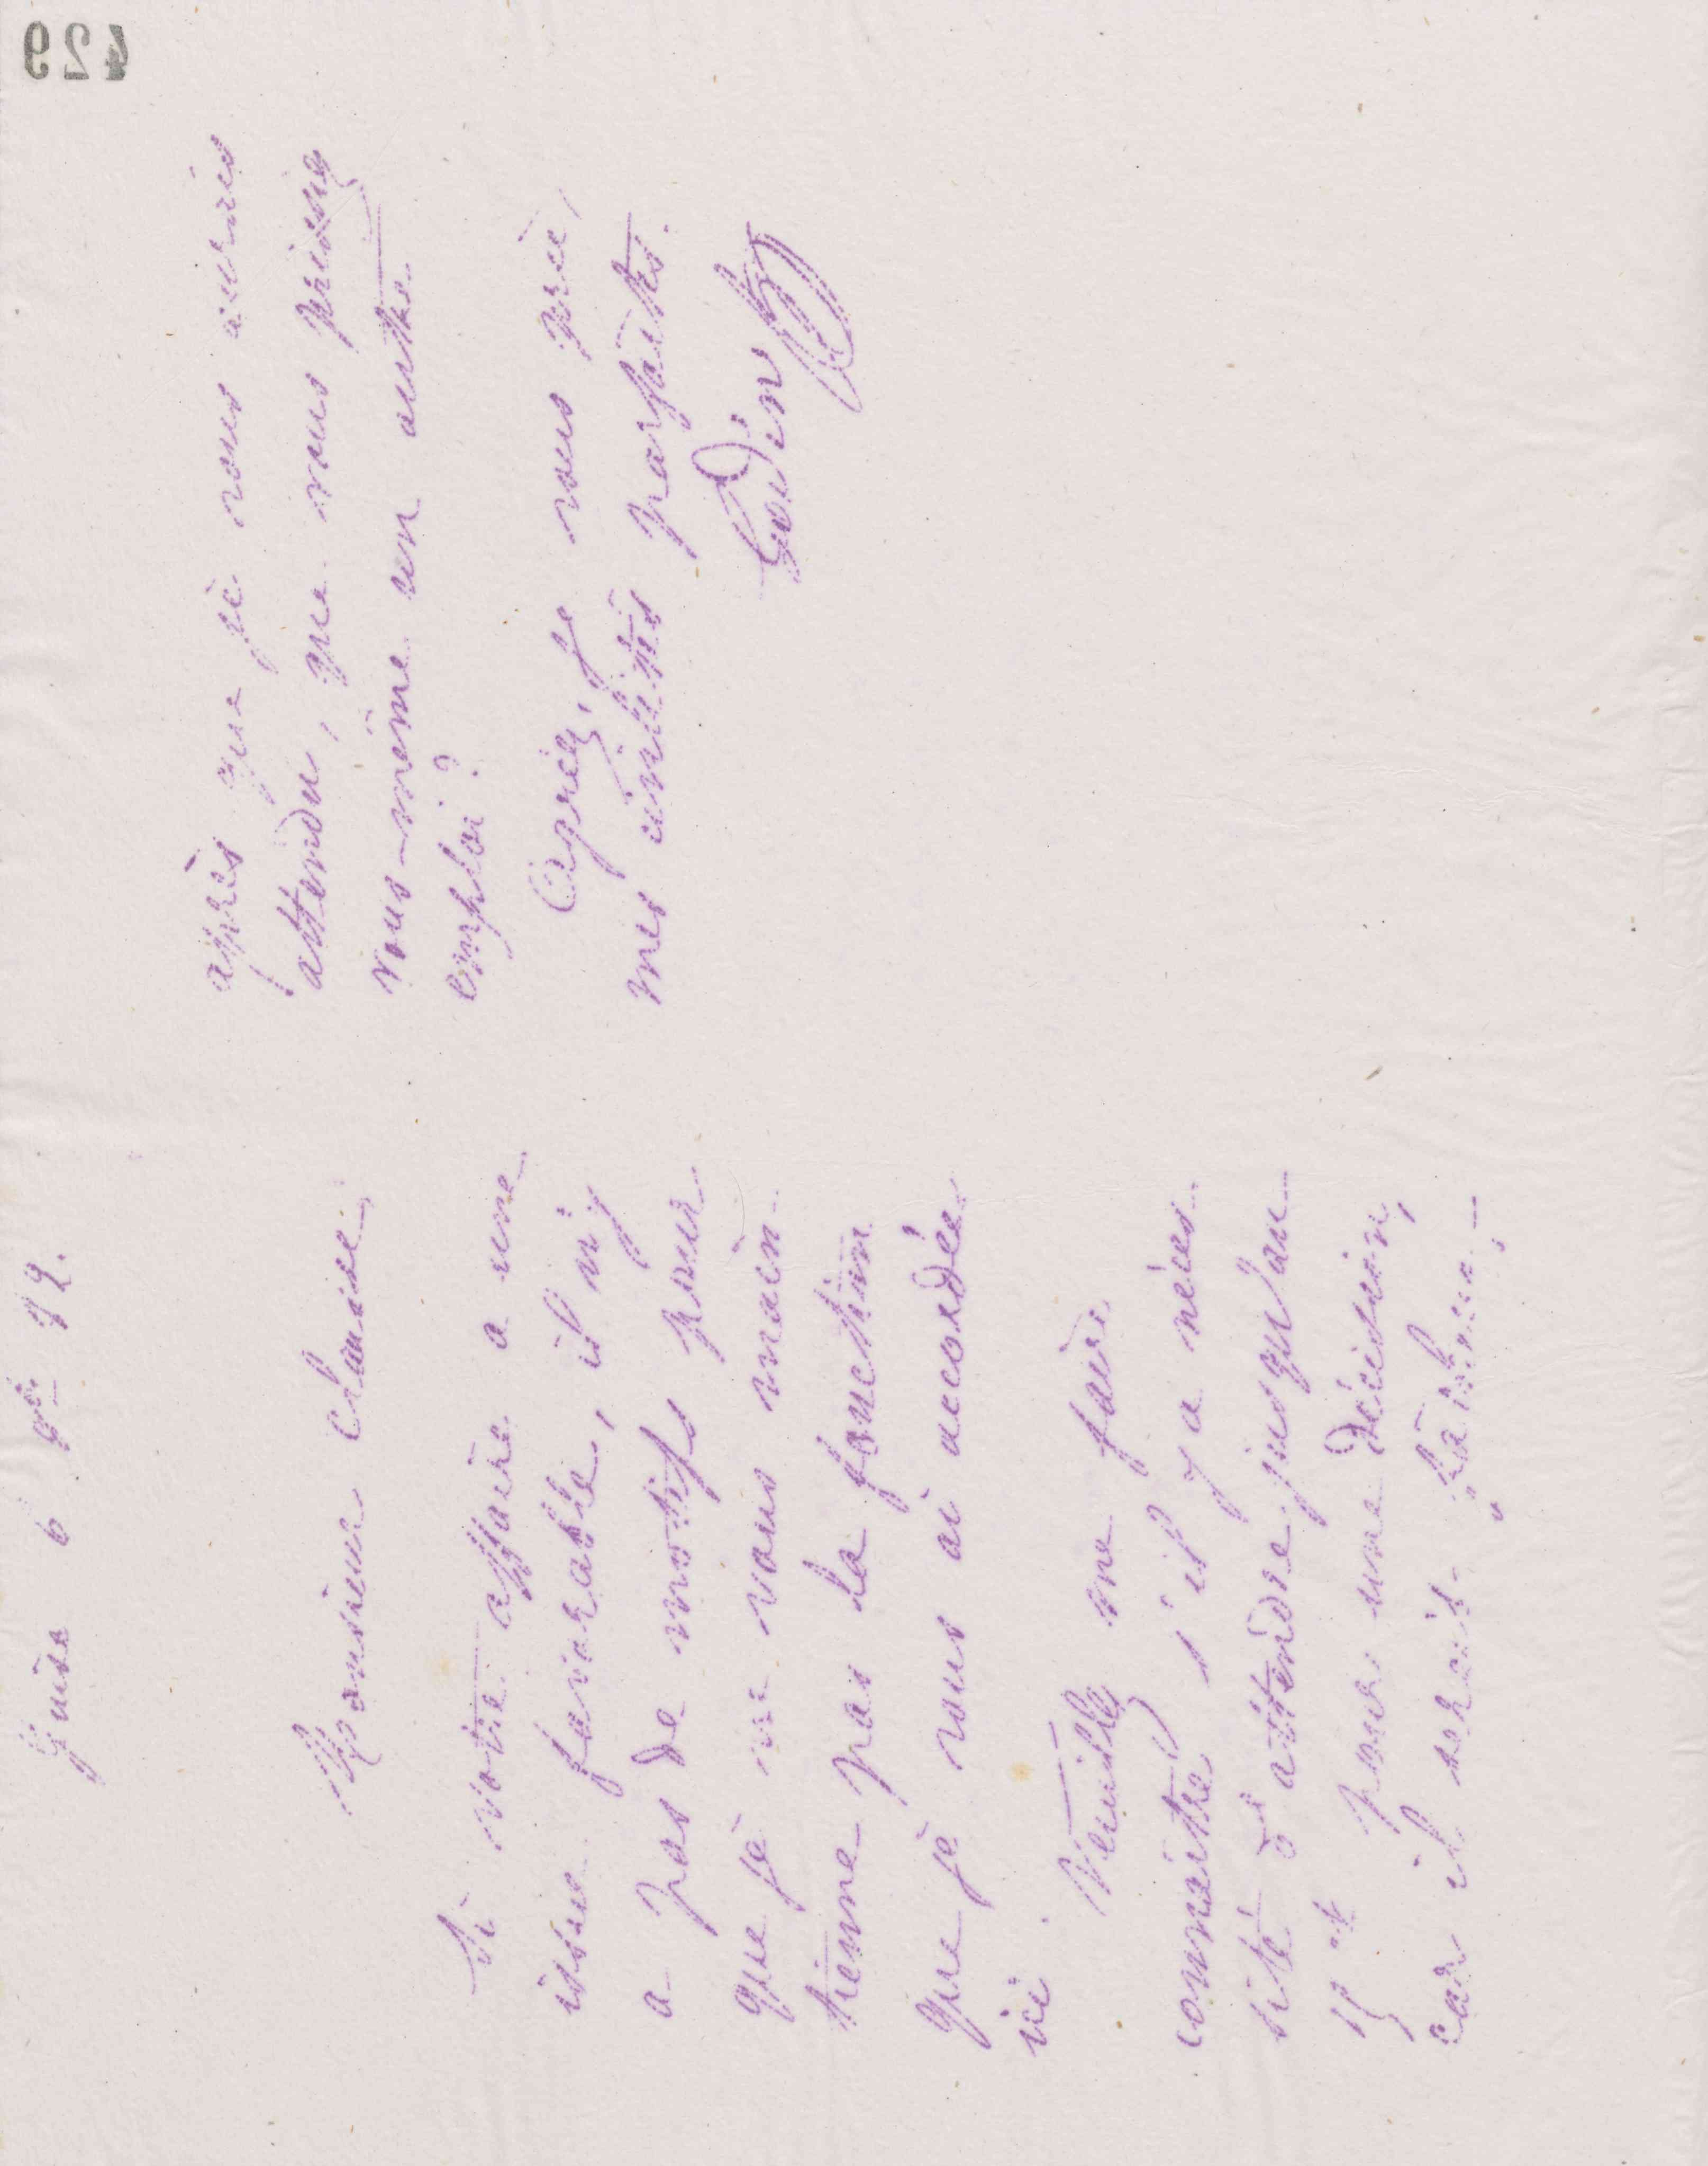 429
Guise 6 9bre 72.
Monsieur Chamise,
Si votre affaire a une
issue favorable, il n'y
a pas de motifs pour
que je ne vous main-
tienne pas la fonction
que je vous ai accordée
ici.
Veuillez me faire
connaître s'il y a néces-
sité d'attendre jusqu'au
15 pour une décision,
car il serait fâcheux,
après que je vous aurais
attendu, que vous prissiez
vous-même un autre
emploi?
Agréez, je vous prie,
mes civilités parfaites.
Godin